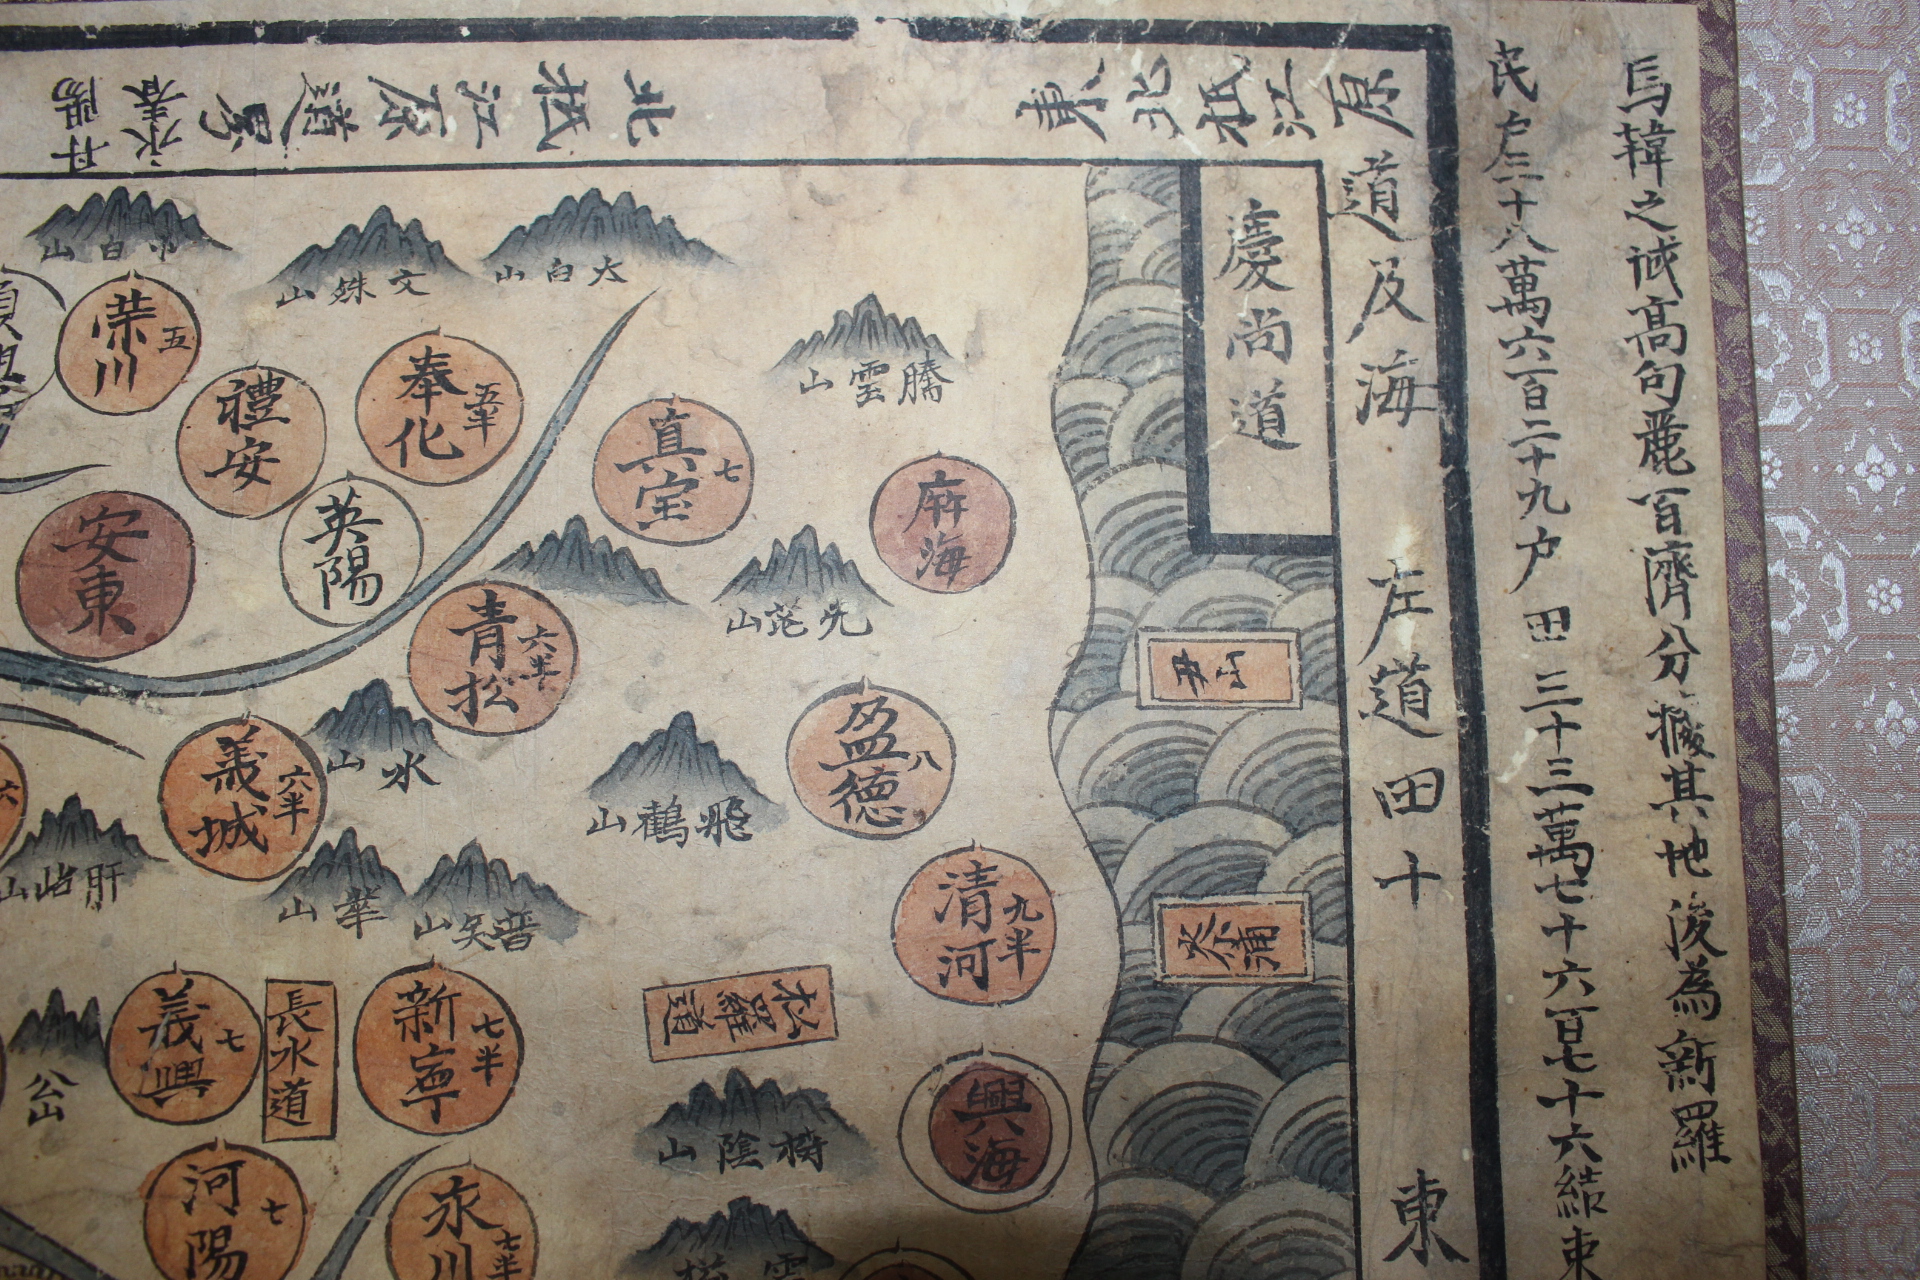 馬韓之誠高句麗百濟分據其地後為新羅
民戶三十八萬六百二十九户田三十三萬七十六百七十六結東
原江抵北東
道及海
左道田十
東
北抵江原道界
永春
丹陽
慶尚道
小白山
文殊山
太白山
騰雲山
榮川 五
禮安
奉化 五半
真宝 七
英陽
安東
麻海
青松 六半
先茫山
盈德 八
丑山
義城 六半
水山
飛鶴山
清河 九半
肝岾山
華山
普賢山
松羅道
義興 七
長水道
新寧 七半
公山
興海
椅陰山
河陽 七
永川 七半